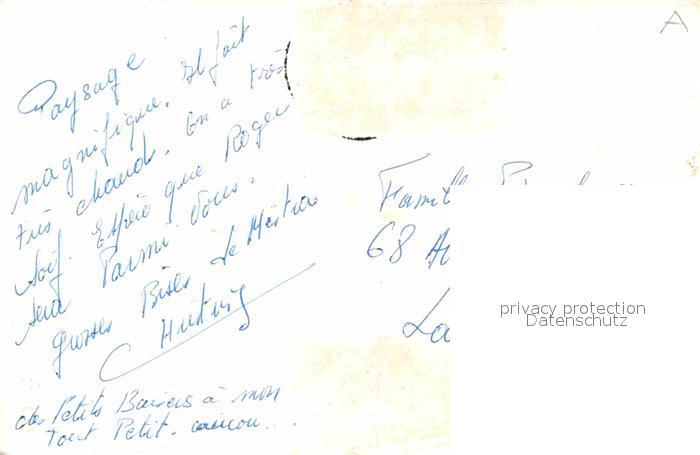 A
Paysage
magnifique. Il fait
très chaud. On a très
soif. Espère que Roger
sera Parmi Vous.
grosses Bises de
des Petits Baisers à mon
Tout Petit.
Famill
68 A
La
privacy protection
Datenschutz